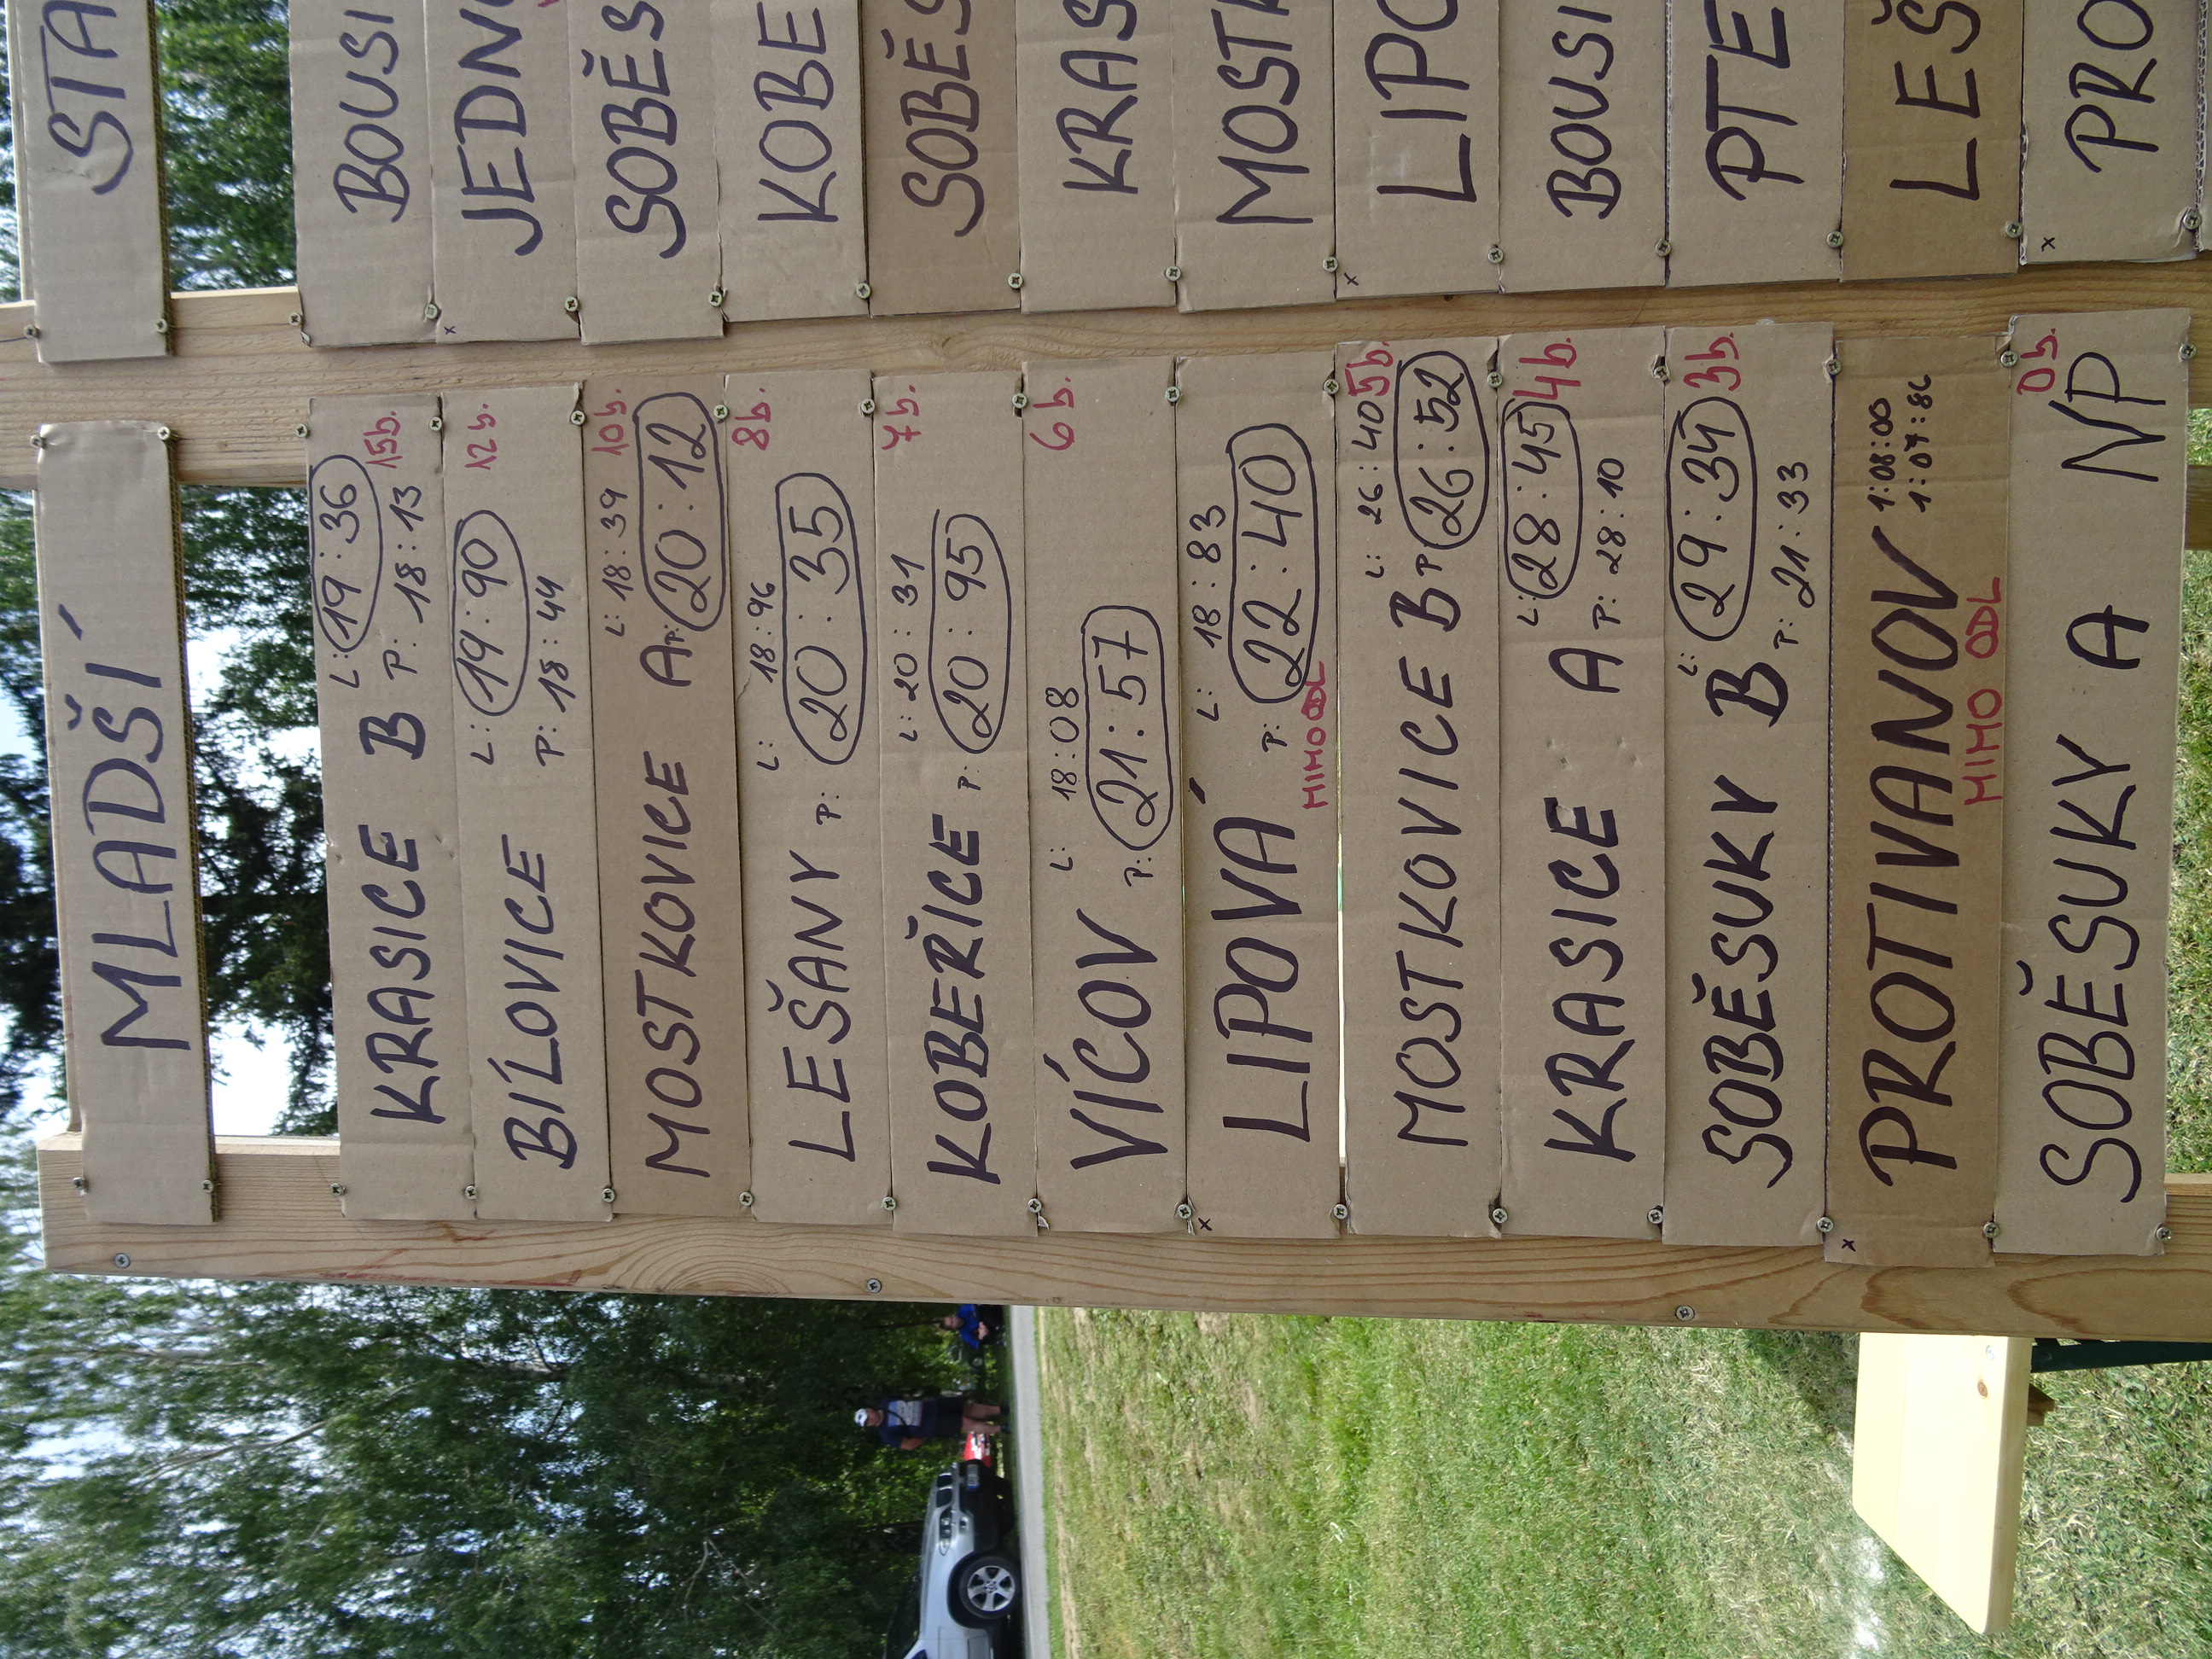 MLADŠÍ
KRASICE B L: 19:36 15b.
P: 18:13
BÍLOVICE L: 19:90 12b.
P: 18:44
MOSTKOVICE A L: 18:39 10b.
P: 20:12
LEŠANY L: 18:96 8b.
P: 20:35
KOBEŘICE L: 20:31 7b.
P: 20:95
VÍCOV L: 18:08 6b.
P: 21:57
x LIPOVÁ L: 18:83
P: 22:40
MIMO ODL
MOSTKOVICE B L: 26:40 5b.
P 26:52
KRASICE A L: 28:45 4b.
P: 28:10
SOBĚSUKY B L: 29:34 3b.
P: 21:33
x PROTIVANOV 1:08:00
1:07:86
MIMO ODL
SOBĚSUKY A NP 0b.
STA
BOUSI
x JEDN
SOBĚS
KOBE
SOBĚS
KRAS
MOSTK
x LIPO
BOUSI
PTE
LEŠ
x PRO